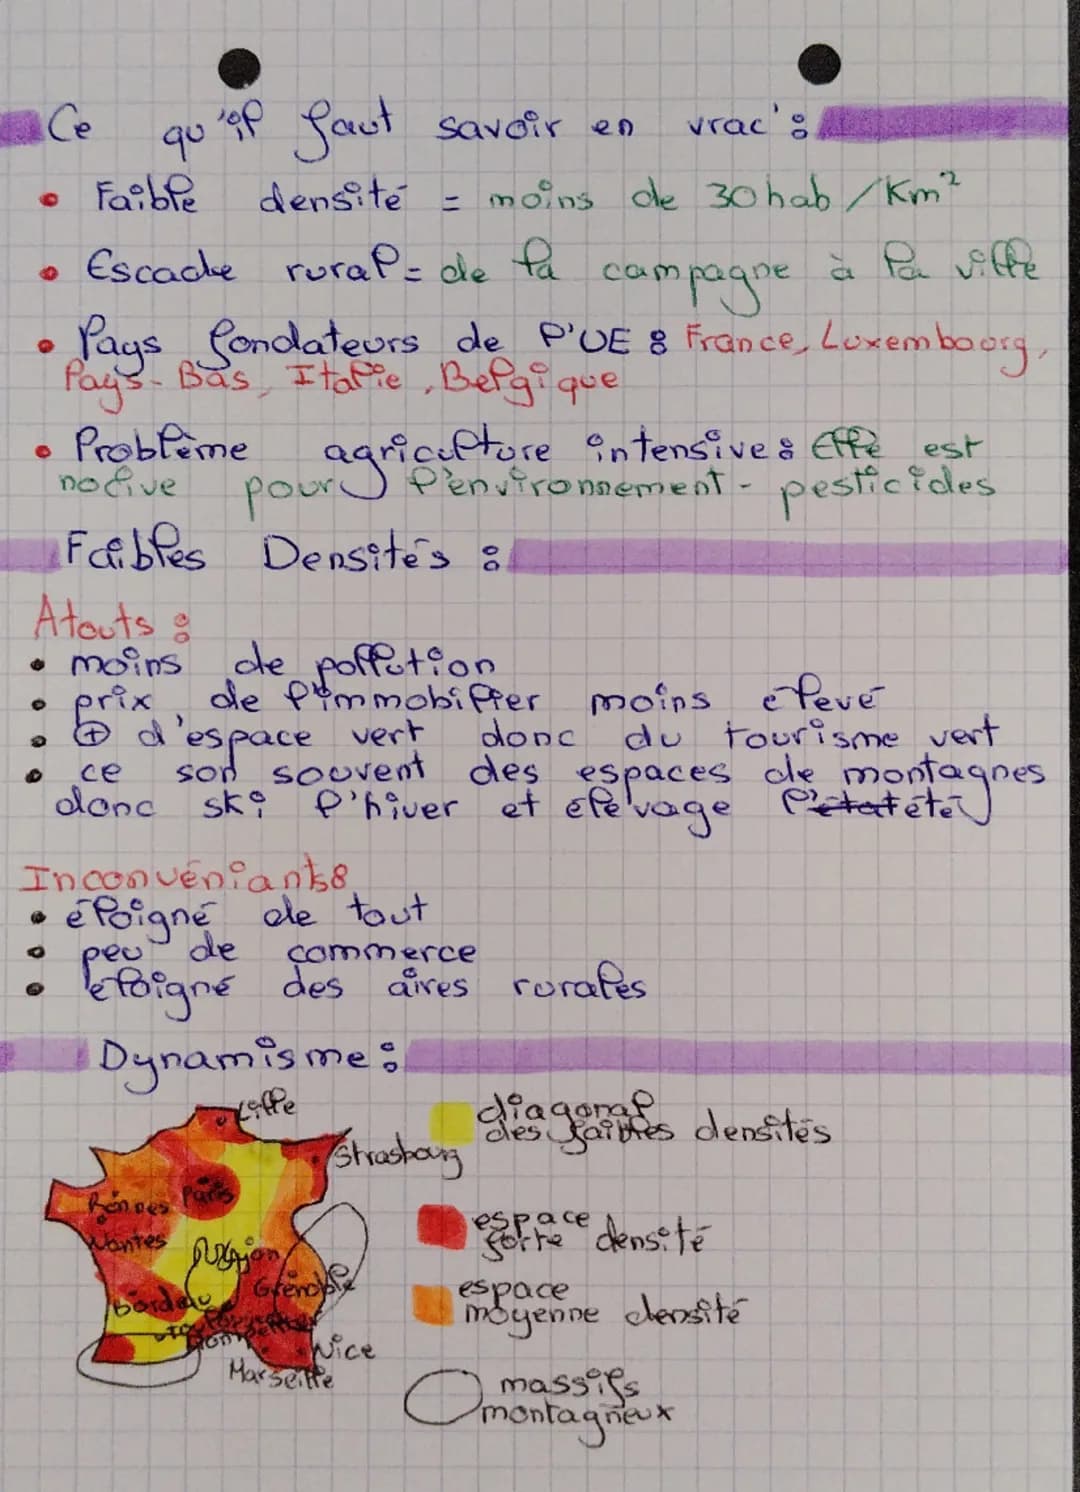 Ce qu'il faut savoir en vrac :
• Faible densité = moins de 30 hab/Km²
• Escade rural = de la campagne à la ville
• Pays fondateurs de l'UE : France, Luxembourg,
Pays-Bas, Italie, Belgique
• Problème agriculture intensive : Elle est
nocive pour l'environnement - pesticides
Faibles Densités :
Atouts :
• moins de pollution
• prix de l'immobilier moins élevé
• ⊕ d'espace vert donc du tourisme vert
• ce son souvent des espaces de montagnes
donc ski l'hiver et élevage l'état été
Inconvéniants :
• éloigné de tout
• peu de commerce
• éloigné des aires rurales
Dynamisme :
Lille
Strasbourg
Paris
Rennes
Nantes
Grenoble
bordeau
Nice
Marseille
diagonal
des faibles densités
espace
forte densité
espace
moyenne densité
massifs
montagneux